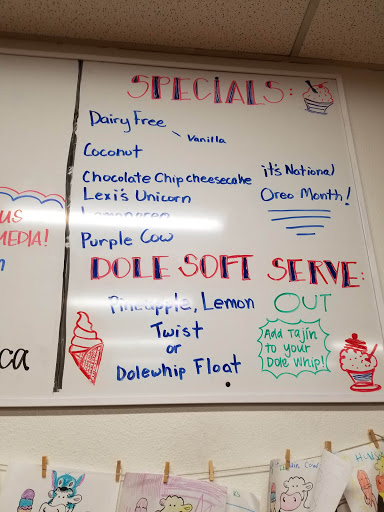 SPECIALS:
Dairy Free
- Vanilla
Coconut
Chocolate Chip cheesecake
Lexi's Unicorn
Lemonoreo
Purple Cow
it's National
Oreo Month!
us
MEDIA!
ca
DOLE SOFT SERVE:
Pineapple, Lemon OUT
Twist
or
Dolewhip Float
Add Tajín
to your
Dole Whip!